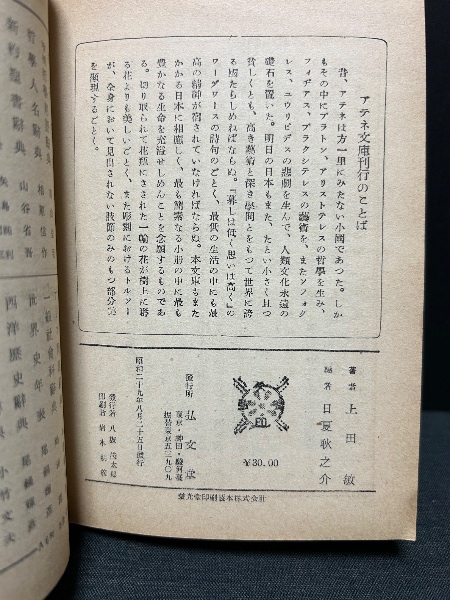 アテネ文庫刊行のことば
昔、アテネは方一里にみたない小國であつた。しか
もその中にプラトン、アリストテレスの哲學を生み、
フィヂアス、プラクシテレスの藝術を、またソフォク
レス、ユウリピデスの悲劇を生んで、人類文化永遠の
礎石を置いた。明日の日本もまた、たとい小さく且つ
貧しくとも、高き藝術と深き學問とをもつて世界に誇
る國たらしめねばならぬ。『暮しは低く想いは高く』の
ワーヅワースの詩句のごとく、最低の生活の中にも最
高の精神が宿されていなければならぬ。本文庫もまた
かかる日本に相應しく、最も簡素なる小册の中に最も
豊かなる生命を充溢せしめんことを念願するものであ
る。切り取られて花瓶にさされた一輪の花が樹上に咲
る花よりも美しいごとく、また彫刻におけるトルソー
が、全身において見出されない肢節のみのもつ部分美
を顯現するごとく。
著者 上田敏
編者 日夏秋之介
¥30.00
發行所 弘文堂
東京・神田・駿河臺
振替東京五三九〇九
昭和二十九年八月二十五日發行
發行者 八坂淺太郎
榮光堂印刷製本株式会社
哲學人名辭典
新約聖書辭典
世界史年表
西洋歴史辭典